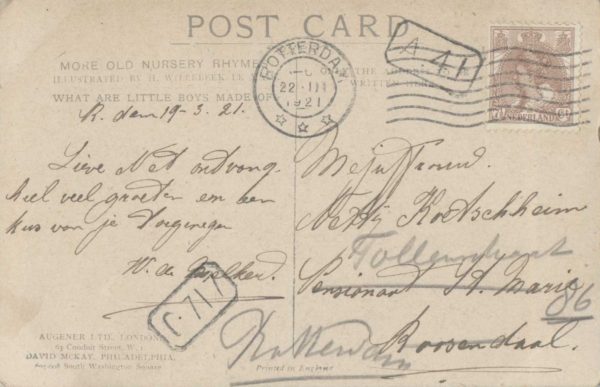 POST CARD
MORE OLD NURSERY RHYMES
ILLUSTRATED BY H. WILLEBEEK LE M
WHAT ARE LITTLE BOYS MADE OF
WRITTEN HERE
ROTTERDAM
22 · III
1921
A. 41
7½ NEDERLAND
R. dam 19-3. 21.
Lieve Net ontvang
heel veel groeten en een
kus van je Toegenegen
W. de
C. 717
Mejuffrouw.
Netty
Tollensstraat
Pensionaat St. Marie
86
Roosendaal.
Rotterdam
AUGENER LTD. LONDON
63 Conduit Street, W. 1.
DAVID MCKAY, PHILADELPHIA,
604-608 South Washington Square
Printed in England